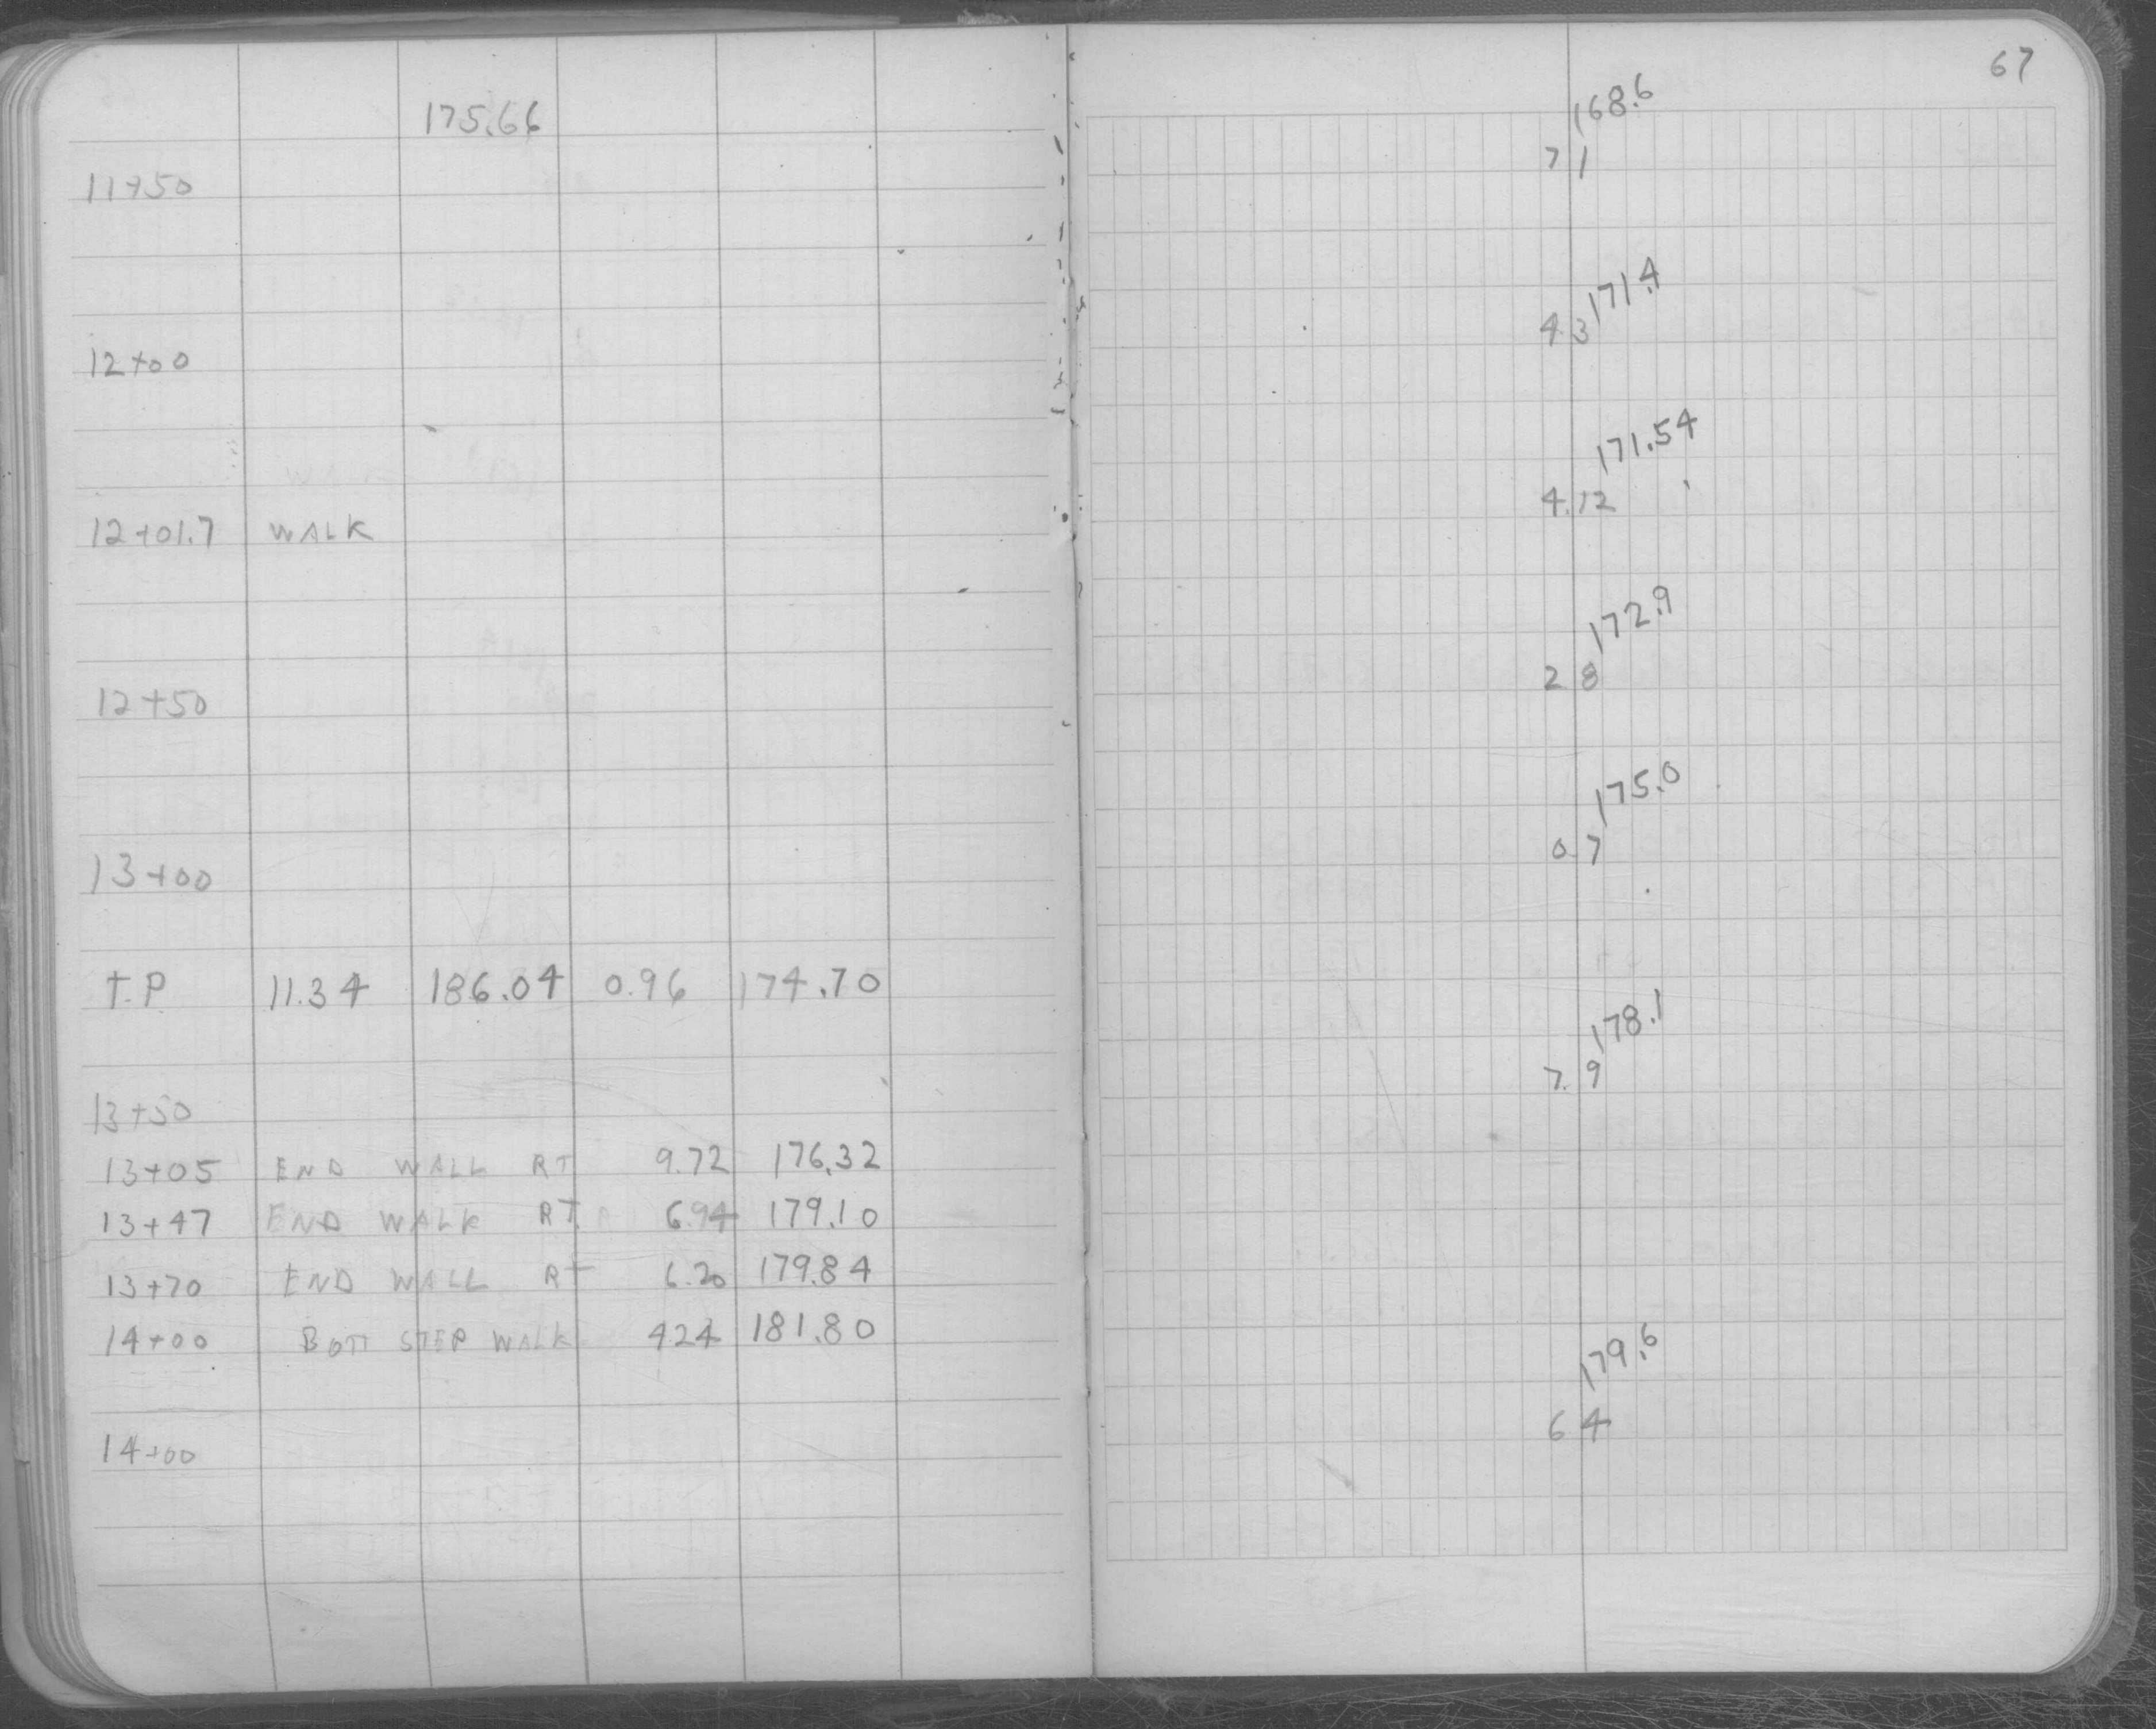 175.66
11+50
12+00
12+01.7 WALK
12+50
13+00
T.P 11.34 186.04 0.96 174.70
13+50
13+05 END WALL RT 9.72 176.32
13+47 END WALK RT 6.94 179.10
13+70 END WALL RT 6.20 179.84
14+00 BOTT STEP WALK 4.24 181.80
14+00
67
168.6
7 1
171.4
4.3
171.54
4.12
172.9
2 8
175.0
0.7
178.1
7.9
179.6
6 4